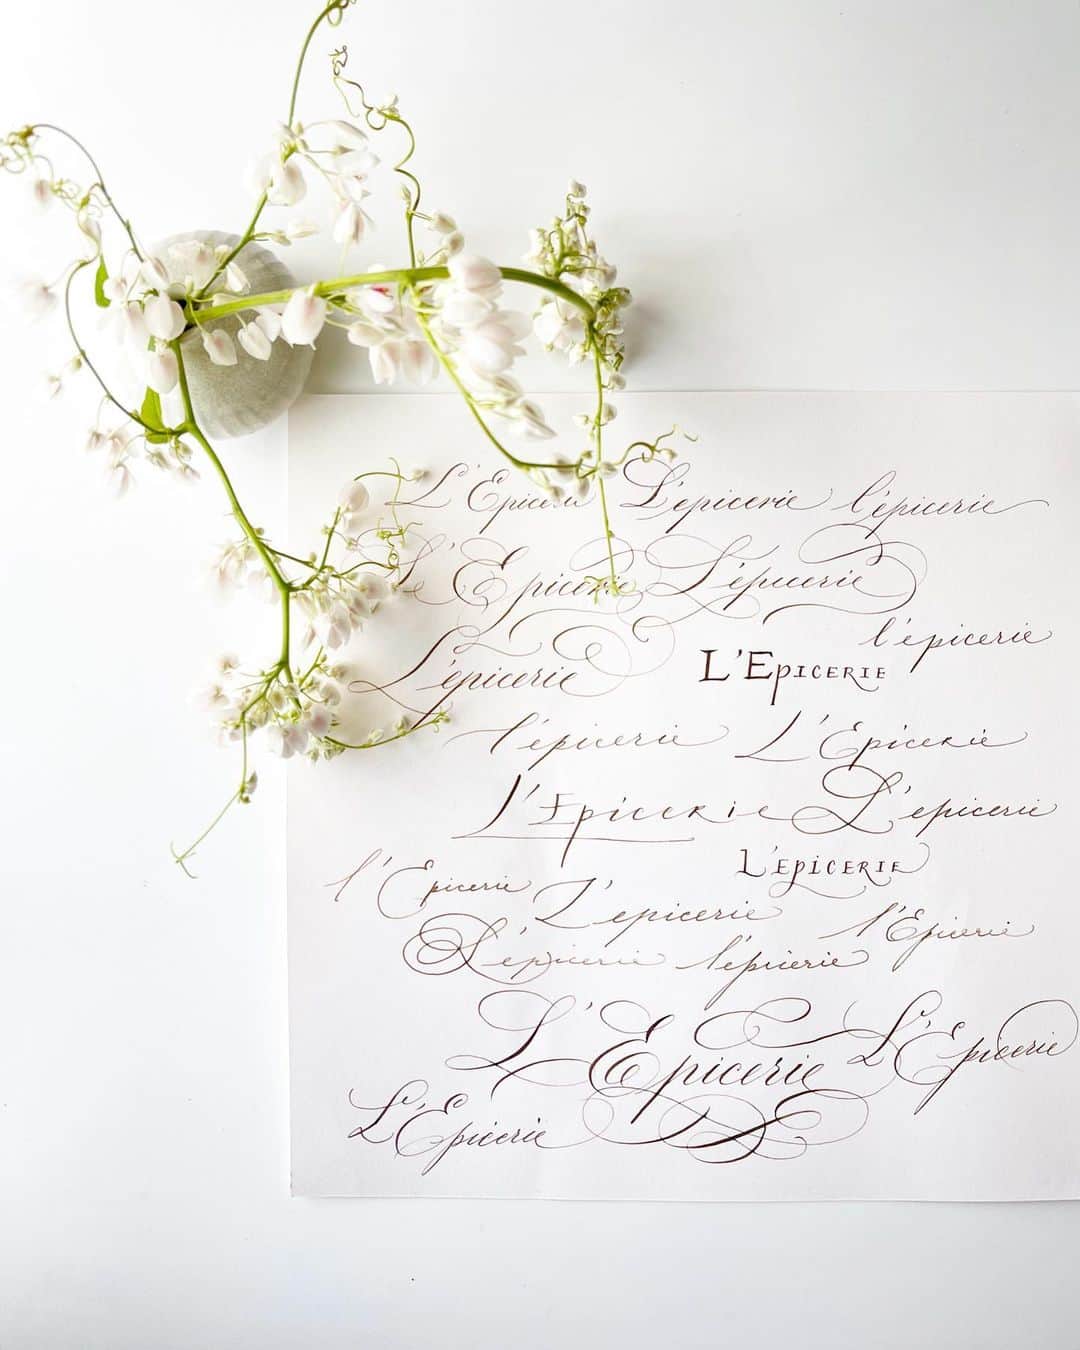 L'Epicerie L'epicerie l'épicerie
L'Epicerie L'épicerie
l'épicerie
L'épicerie L'EPICERIE
l'épicerie L'Epicerie
L'Epicerie L'epicerie
L'EPICERIE
l'Epicerie L'epicerie
l'Epicerie
L'épicerie l'épicerie
L'Epicerie L'Epicerie
L'Epicerie